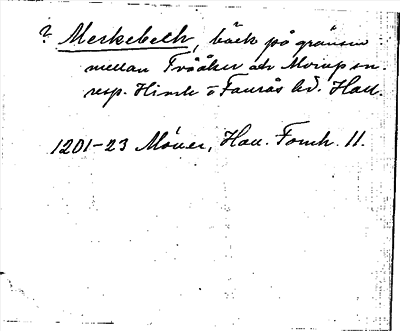 ? Merkebech, bäck på gränsen
mellan Tvååker och Morup sn.
resp. Himle o Faurås hd. Hall.
1201-23 Möller, Hall. Fornh. 11.